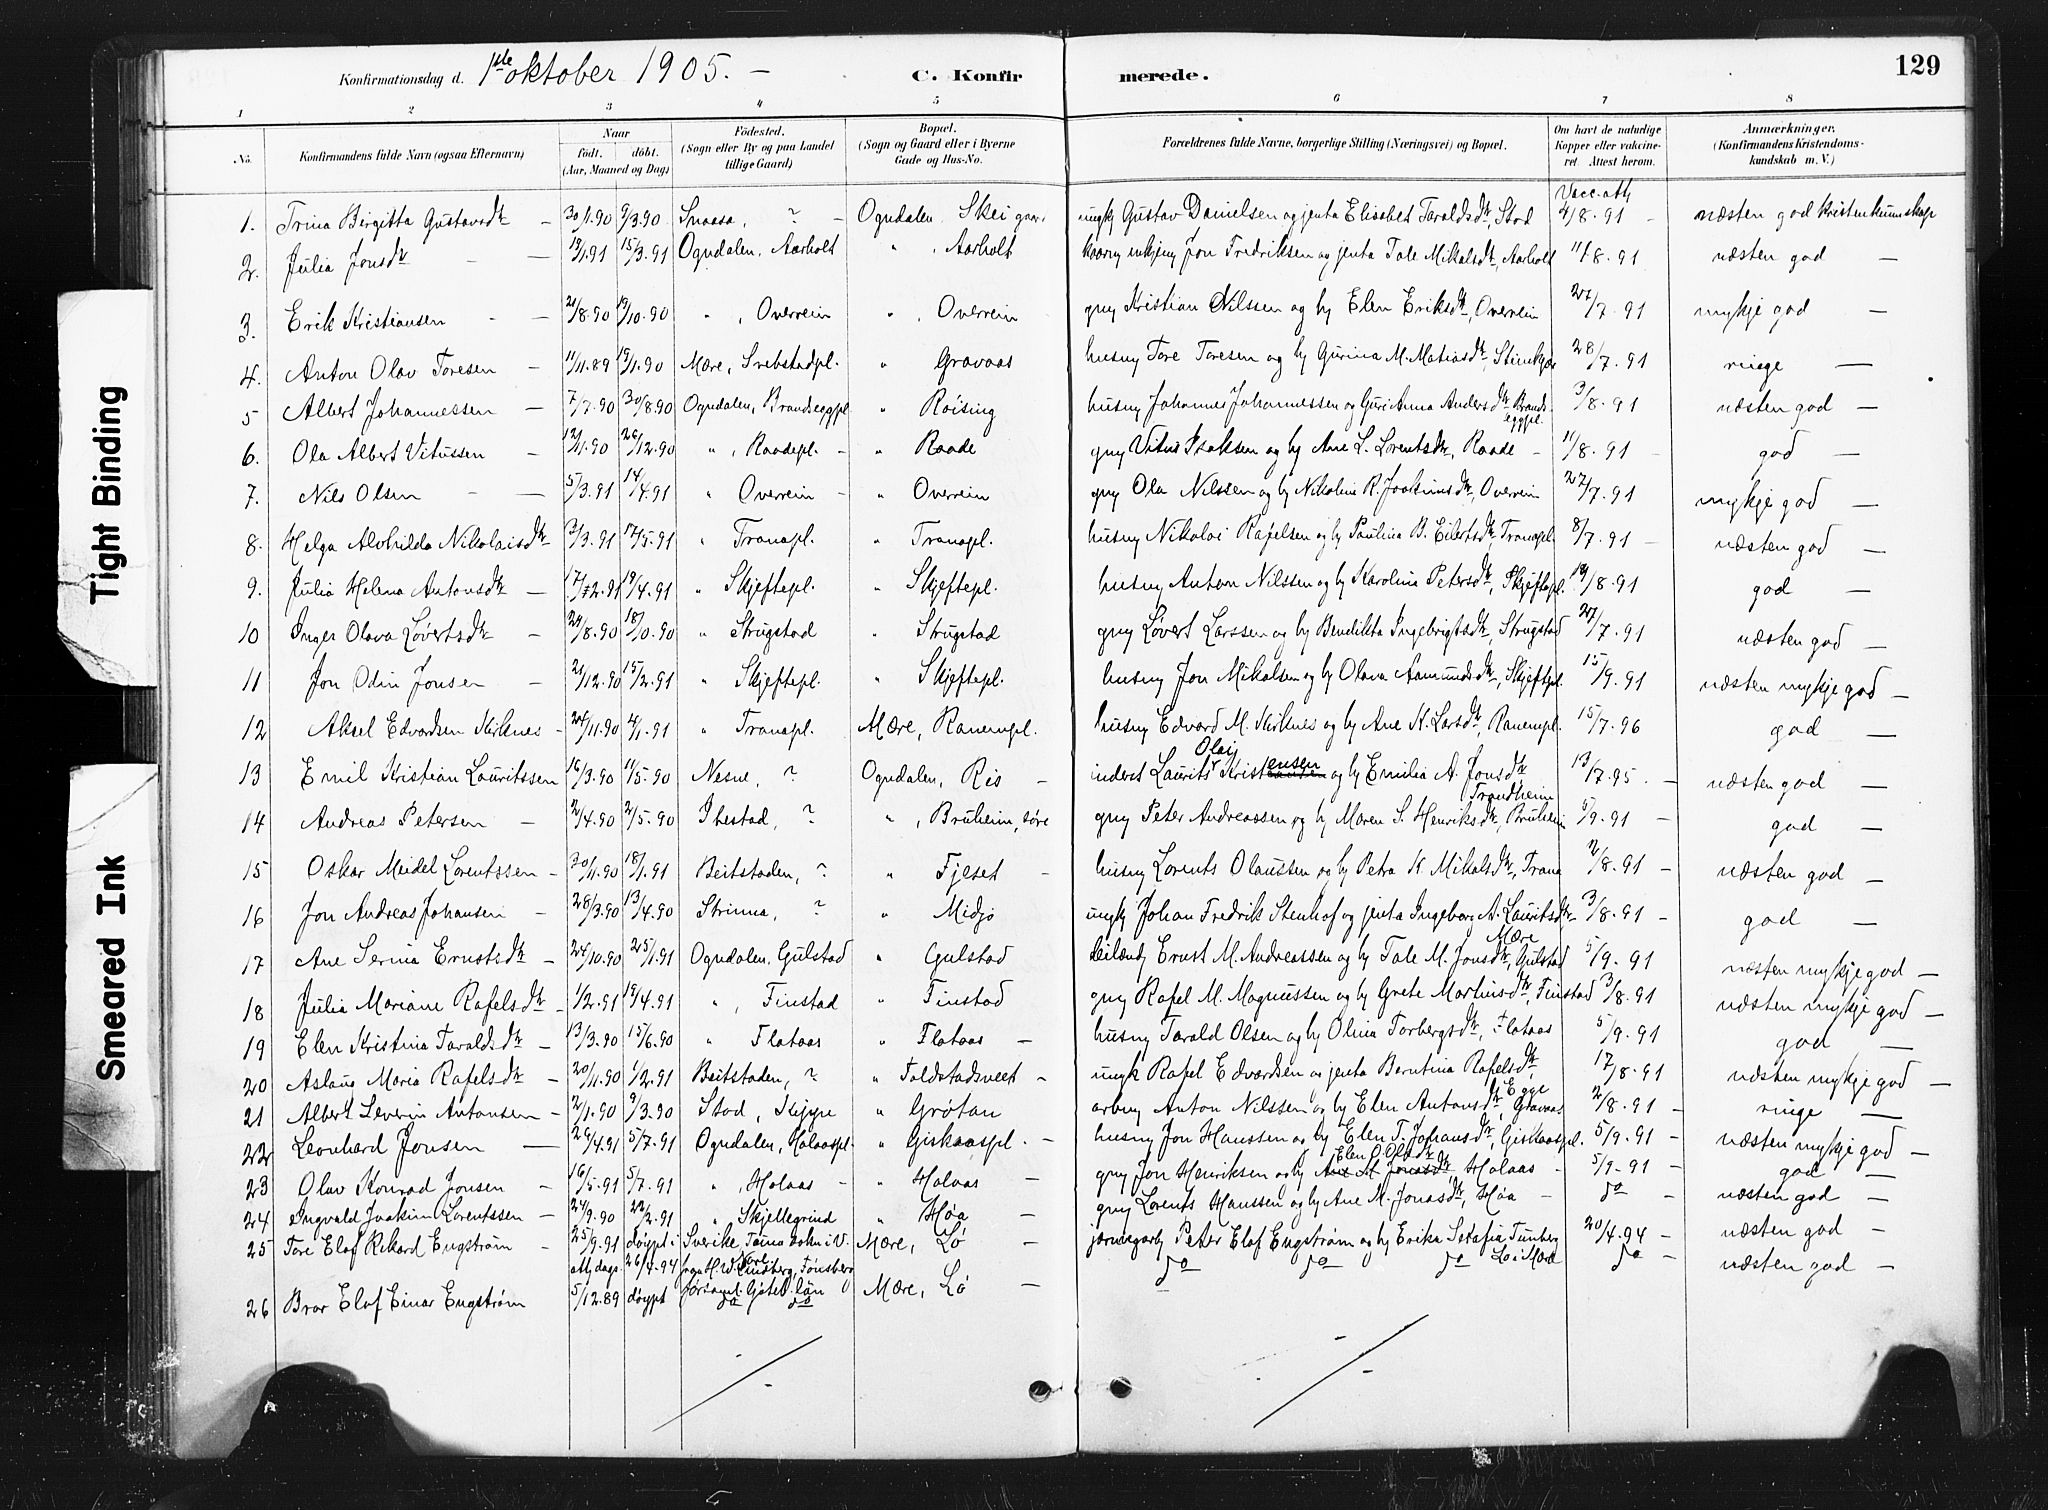 129
Konfirmationsdag d. 1ste oktober 1905. — C. Konfirmerede.
1 2 3 4 5 6 7 8
No. Konfirmandens fulde Navn (ogsaa Efternavn) Naar födt. döbt. (Aar, Maaned og Dag) Födested. (Sogn eller By og paa Landet tillige Gaard) Bopæl. (Sogn og Gaard eller i Byerne Gade og Hus-No. Forældrenes fulde Navne, borgerlige Stilling (Næringsvei) og Bopæl. Om havt de naturlige Kopper eller vakcineret. Attest herom. Anmærkninger. (Konfirmandens Kristendomskundskab m. V.)
1. Trina Birgitta Gustavsdtr — 30/1.90 9/3.90 Snaasa, ? — Ogndalen, Skei ungk Gustav Danielsen og jenta Elisabet Taraldsdtr, Stod Vacc. att. 4/8.91 — næsten god kristenkunnskap
2. Julia Jonsdtr — 19/1.91 15/3.91 Ogndalen, Aarholt " , Aarholt Jon Fredriksen og jenta Tale Mikalsdtr, Aarholt 11/8.91 næsten god —
3. Erik Kristiansen — 21/8.90 19/10.90 " , Overrein " , Overrein gmy Kristian Nilssen og hy Elen Eriksdtr, Overrein 27/7.91 mykje god —
4. Anton Olav Toresen — 11/11.89 19/1.90 Mære, Svebstadpl. " Gravaas husmy Tore Toresen og hy Gurina M. Matiasdtr, Stenkjær 28/7.91 ringe —
5 Albert Johannessen — 7/7.90 30/8.90 Ogndalen, Brandseggpl " Roising husmy Johannes Johannessen og Guri Anna Andersdtr Brandseggpl. 3/8.91 næsten god —
6. Ola Albert Vitussen — 12/11.90 26/12.90 " , Raadepl. — " Raade gmy Vitus Isaksen og hy Ane L. Lorentsdtr, Raade — 11/8.91 — god —
7. Nils Olsen — 5/3.91 14/4.91 " Overrein — " Overrein gmy Ola Nilssen og hy Nikoline R. Joakimsdtr, Overrein 27/7.91 mykje god —
8. Helga Alvhilda Nikolaisdtr 3/3.91 17/5.91 " Tranapl. " Tranapl. husmy Nikolai Rafelsen og hy Paulina B. Eilertsdtr, Tranapl 8/7.91 — næsten god —
9. Julia Helena Antonsdtr — 17/2.91 19/4.91 " Skjeftepl. " Skjeftepl. husmy Anton Nilssen og hy Karolina Petersdtr, Skjeftepl. 19/8.91 god —
10 Inger Olava Løvertsdtr — 24/8.90 18/10.90 " Strugstad " Strugstad gmy Løvert Larssen og hy Bendikta Ingebrigtsdtr, Strugstad 27/7.91 næsten god —
11 Jon Odin Jonsen — 21/12.90 15/2.91 " Skjeftepl. " Skjeftepl. husmy Jon Mikalsen og hy Olava Aamundsdtr, Skjeftpl. 15/9.91 næsten mykje god —
12 Aksel Edvardsen Kirknes — 24/11.90 4/1.91 " Tranapl. Mære, Ranempl. husmy Edvard M. Kirknes og hy Ane K. Larsdtr, Ranempl. 15/7.96 god —
13 Emil Kristian Lauritssen 16/3.90 11/5.90 Nesne, ? Ogndalen, Ris — inderst Laurits Olaij Kristensen og hy Emilia A. Jonsdtr Trondheim 13/7.95. — næsten god —
14 Andreas Petersen — 2/4.90 2/5.90 Ibestad, ? " , Bruheim, søre gmy Peter Andreassen og hy Maren S. Henriksdtr, Bruheim 5/9.91 — god —
15 Oskar Meidel Lorentssen — 30/11.90 18/1.91 Beitstaden, ? " Fjeset — husmy Lorents Olaussen og hy Petra K. Mikalsdtr, Trana 2/8.91 — næsten god —
16 Jon Andreas Johansen — 28/3.90 13/4.90 Strinna, ? " Midjo ungk Johan Fredrik Stenhof og jenta Ingeborg A. Lauritsdtr Mære 3/8.91 — god —
17 Ane Serina Ernstsdtr — 24/10.90 25/1.91 Ogndalen, Gulstad " Gulstad leilændg Ernst M. Andreassen og hy Tale M. Jonsdtr, Gulstad 5/9.91 næsten mykje god —
18 Julia Mariane Rafelsdtr — 1/2.91 19/4.91 " , Finstad " Finstad gmy Rafel M. Magnussen og hy Grete Martinsdtr, Finstad 3/8.91 næsten mykje god —
19 Elen Kristina Taraldsdtr — 13/3.90 15/6.90 " Flataas " Flataas — husmy Tarald Olsen og hy Olina Torbergsdtr, Flataas 5/9.91 god —
20 Aslaug Maria Rafelsdtr — 20/11.90 1/2.91 Beitstaden, ? " Foldstadsveet — ungk Rafel Edvardsen og jenta Berntina Rafelsdtr, Egge 17/8.91 næsten mykje god —
21 Albert Severin Antonsen — 2/1.90 9/3.90 Stod, Kippe " Grøtan arbmy Anton Nilssen og hy Elen Antonsdtr, Gravaas 2/8.91 — ringe —
22 Leonhard Jonsen — 26/4.91 5/7.91 Ogndalen, Holaaspl " Giskaaspl. — husmy Jon Hanssen og hy Elen T. Johansdtr, Giskaaspl. 5/9.91 — næsten mykje god —
23 Olav Konrad Jonsen — 16/5.91 5/7.91 " , Holaas — " Holaas — gmy Jon Henriksen og hy Ane M. Jonasdtr Holaas — 5/9.91 — god —
24 Ingvald Joakim Lorentssen — 24/9.90 22/2.91 " Skjellegrind " Høa — gmy Lorents Hanssen og hy Ane M. Jonasdtr, Høa — do — næsten god —
25 Tore Elof Rikard Engstrøm — 25/9.91 døypt i Sverike, Mære, Lø — Peter Elof Engstrøm og hy Erika Serafia Tunberg Lø i Mære 20/4.94 — næsten god —
26 Bror Elof Einar Engstrøm 5/12.89 døypt do do Mære, Lø do do do do — næsten god —
Tight Binding
Smeared Ink